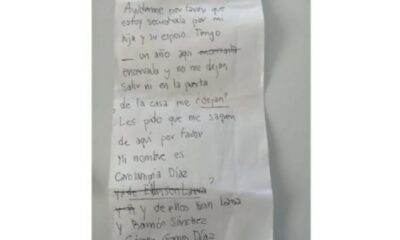 Ayúdame por favor que
estoy secuestrada por mi
hija y su esposo. Tengo
un año aquí encerrada
encerrada y no me dejan
salir ni en la puerta
de la casa me
Les pido que me saquen
de aquí por favor
Mi nombre es
Carolangria Díaz
y de
y de ellos son Lana
y Ramón Sánchez
Díaz